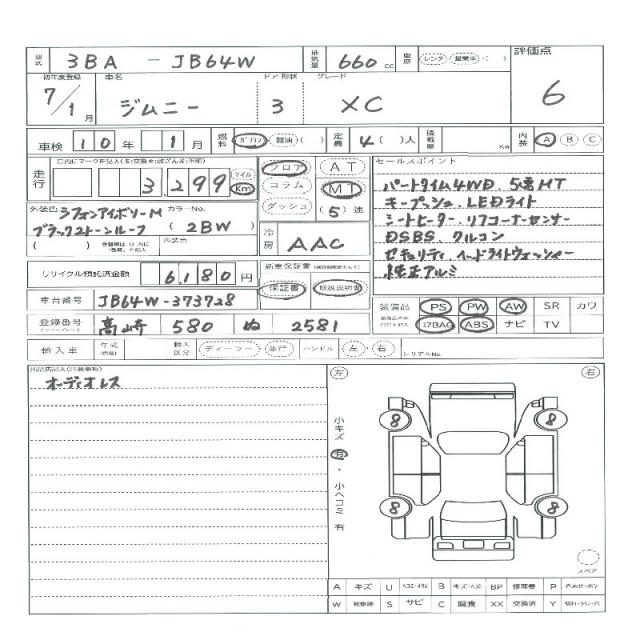 型式 3BA - JB64W 排気量 660 cc 車歴 レンタ・営業車・( ) 評価点
初年度登録 車名 ドア 形状 グレード
7/1月 ジムニー 3 XC 6
車検 10年 1月 燃料 ガソリン・軽油・( ) 定員 4( )人 積載量 Kg 内装 A B C
走行 3,299 マイル Km フロア AT
コラム MT
ダッシュ (5)速
セールスポイント
パートタイム4WD、5速MT
キープッシュ、LEDライト
シートヒーター、リアコーナーセンサー
DSBS、クルコン
セキュリティ、ヘッドライトウォッシャー
純正アルミ
外装色 シフォンアイボリーM カラーNo.
ブラック2トーンルーフ (2BW)
( ) 内装色
冷房 AAC
リサイクル預託済金額 6,180円 新車保証書
保証書 取扱説明書
車台番号 JB64W-373728
装備品 PS PW AW SR カワ
ｴｱBAG ABS ナビ TV
登録番号 高崎 580 ぬ 2581
輸入車 年式 輸入区分 ディーラー・並行 ハンドル 左・右 シリアルNo.
オーディオレス
左 右
小キズ 有・小ヘコミ 有
8 8
8 8
スペア
A キズ U ヘコミ B キズ・ヘコミ BP 修理要 P
W 補修跡 S サビ C 腐食 XX 交換済 Y 切れ・ワレ・穴